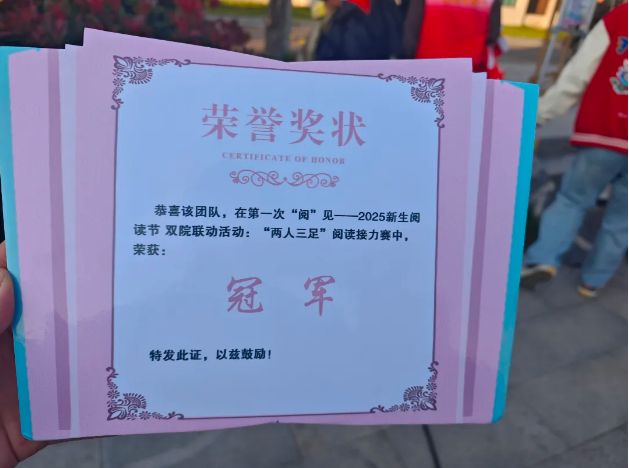 荣誉奖状
CERTIFICATE OF HONOR
恭喜该团队，在第一次“阅”见——2025新生阅
读节 双院联动活动：“两人三足”阅读接力赛中，
荣获：
冠 军
特发此证，以兹鼓励！